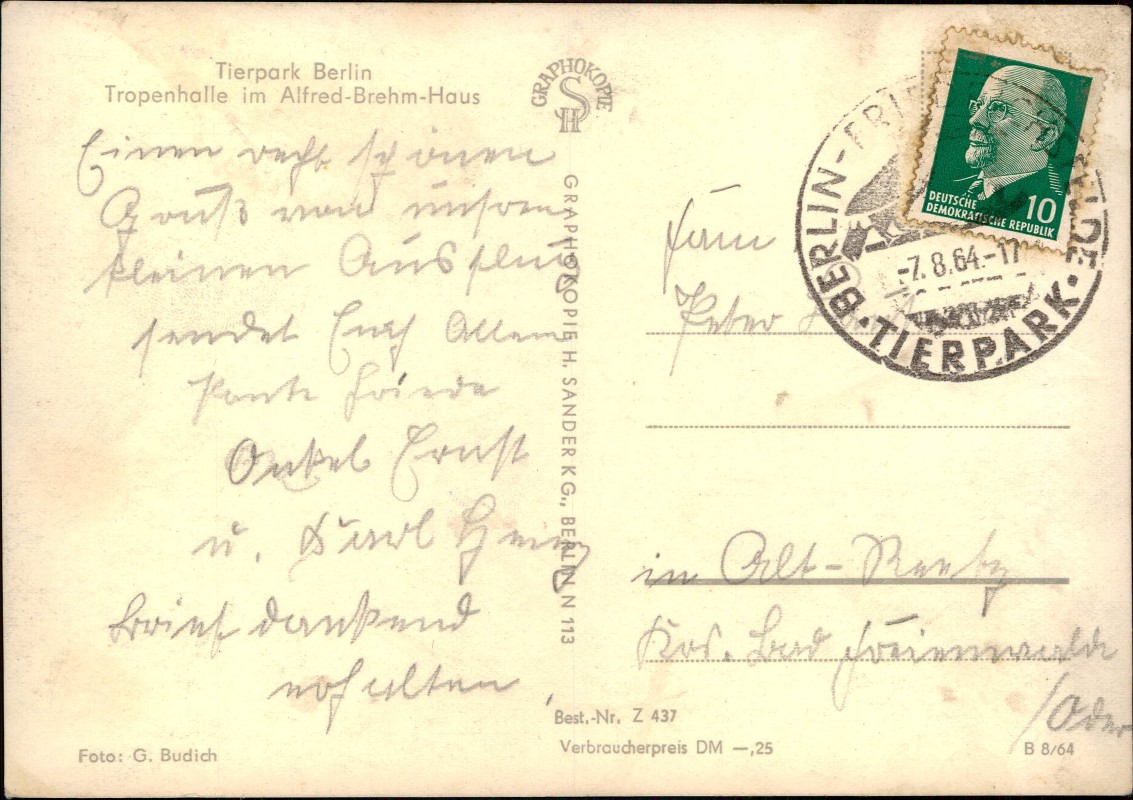 Tierpark Berlin
Tropenhalle im Alfred-Brehm-Haus
Einen recht schönen
Gruß von unserem
kleinen Ausflug
sendet Euch Allen
Tante Friede
Onkel Ernst
u. Karl Heinz
Brief dankend
erhalten.
Foto: G. Budich
GRAPHOKOPIE
SH
GRAPHOKOPIE H. SANDER KG., BERLIN N 113
Best.-Nr. Z 437
Verbraucherpreis DM —,25
DEUTSCHE
DEMOKRATISCHE REPUBLIK
10
BERLIN-FRIEDRICHSFELDE
-7.8.64.-17
TIERPARK
Fam
Peter
in Alt-Reetz
Krs. Bad Freienwalde
/Oder
B 8/64